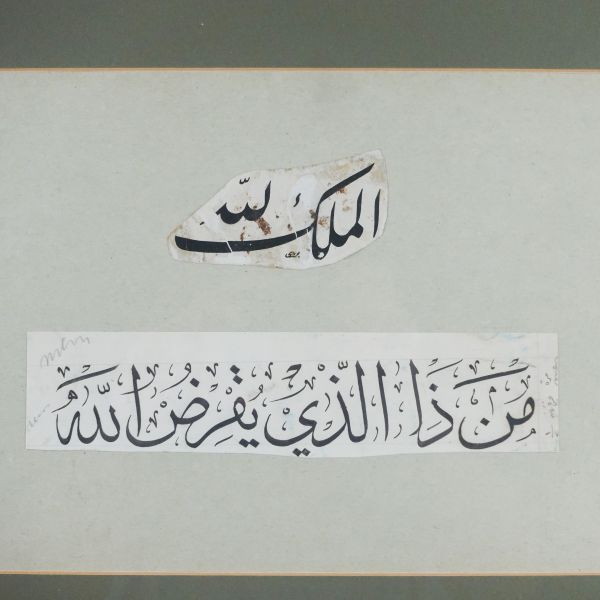 الملك لله
مَنْ ذَا الَّذِي يُقْرِضُ اللهَ